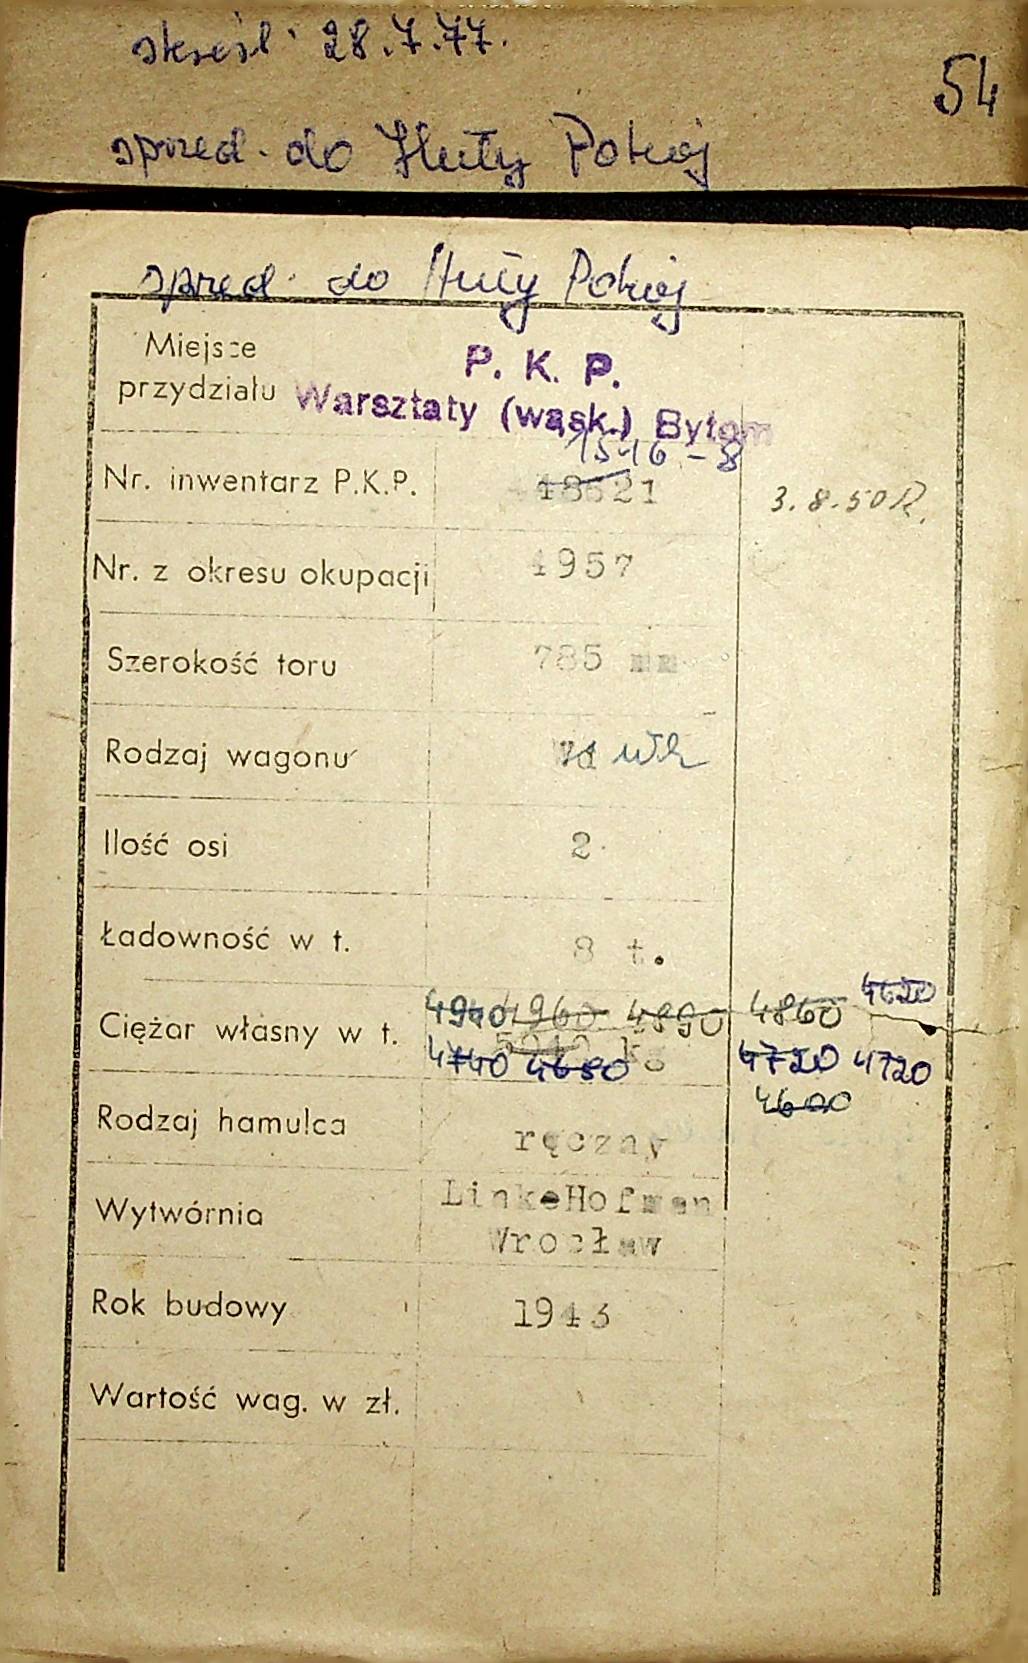 skreśl. 28.7.77.
54
sprzed. do Huty Pokój
sprzed. do Huty Pokój
Miejsce przydziału
P. K. P.
Warsztaty (wąsk.) Bytom
1516-8
Nr. inwentarz P.K.P. 48621
3.8.50 R.
Nr. z okresu okupacji 4957
Szerokość toru 785 mm
Rodzaj wagonu
Ilość osi 2
Ładowność w t. 8 t.
4940 4960 4890 4860 4620
Ciężar własny w t. kg
4740 4680 4720 4720
4600
Rodzaj hamulca ręczny
Wytwórnia LinkeHofman
Wrocław
Rok budowy 1943
Wartość wag. w zł.